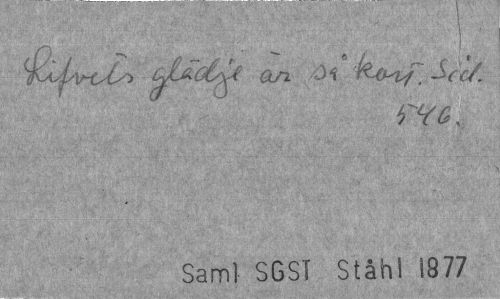 Lifvets glädje är så kort. Sid.
546.
Saml SGST Ståhl 1877